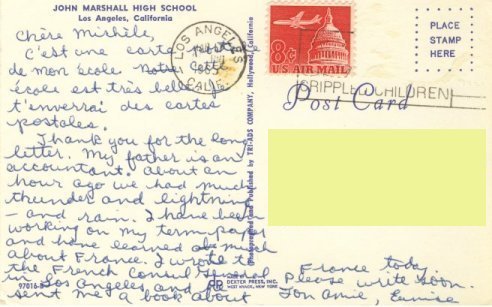 JOHN MARSHALL HIGH SCHOOL
Los Angeles, California
Chère Michèle,
C'est une carte postale
de mon école. Cette
école est très belle. Je
t'enverrai des cartes
postales.
Thank you for the long
letter. My father is an
accountant. About an
hour ago we had much
thunder and lightning
- and rain. I have been
working on my term paper
and have learned much
about France. I wrote to
the French Consul General
in Los Angeles, and he
sent me a book about
France today.
Please write soon.
Ton amie
97016-B
Photographed and Published by TRI-ADS COMPANY, Hollywood, California
DEXTER PRESS, INC.
WEST NYACK, NEW YORK
LOS ANGELES
1965
CALIF.
8¢
U.S. AIR MAIL
CRIPPLED CHILDREN
Post Card
PLACE
STAMP
HERE